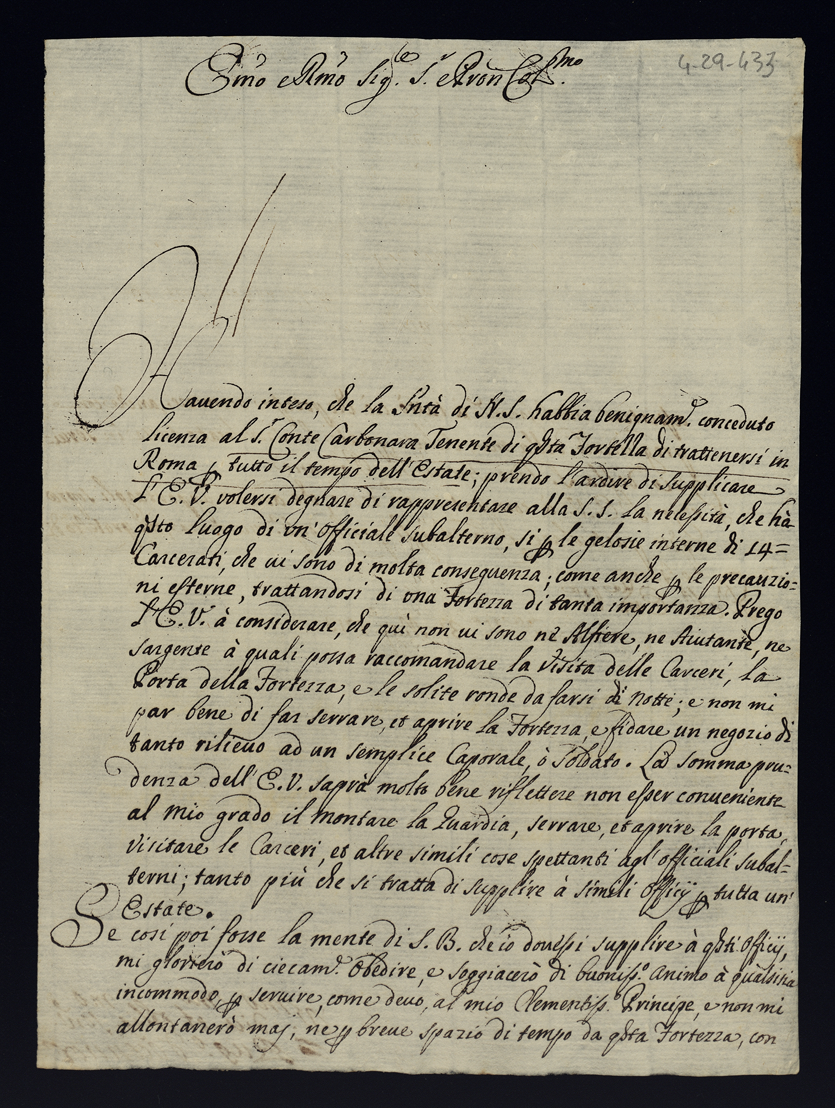 Emo e Rmo Sig.re S.r e Pron Col.mo
4-29-433
Havendo inteso, che la Sntà di N.S. habbia benignam.e conceduto
licenza al S.r Conte Carbonara Tenente di qsta Fortezza di trattenersi in
Roma p tutto il tempo dell'Estate; prendo l'ardire di supplicare
l'E.V. volersi degnare di rappresentare alla S.S. la necessità, che hà
qsto luogo di un'officiale subalterno, si p le gelosie interne di 14=
Carcerati, che vi sono di molta conseguenza; come anche p le precauzio=
ni esterne, trattandosi di una Fortezza di tanta importanza. Prego
l'E.V. à considerare, che quì non vi sono nè Alfiere, ne Aiutante, ne
sargente à quali possa raccomandare la visita delle Carceri, la
Porta della Fortezza, e le solite ronde da farsi di notte; e non mi
par bene di far serrare, et aprire la Fortezza, e fidare un negozio di
tanto rilievo ad un semplice Caporale, ò Soldato. La somma pru=
denza dell'E.V. saprà molto bene riflettere non esser conveniente
al mio grado il montare la Guardia, serrare, et aprire la porta,
visitare le Carceri, et altre simili cose spettanti agl'officiali subal=
terni; tanto più che si tratta di supplire à simili officij p tutta un'
Estate.
Se cosi poi fosse la mente di S.B. che io dovessi supplire à qsti officij,
mi glorierò di ciecam.e obedire, e soggiacerò di buoniss.o animo à qualsisia
incommodo, p servire, come devo, al mio Clementiss.o Principe, e non mi
allontanerò maj, ne p breve spazio di tempo da qsta Fortezza, con